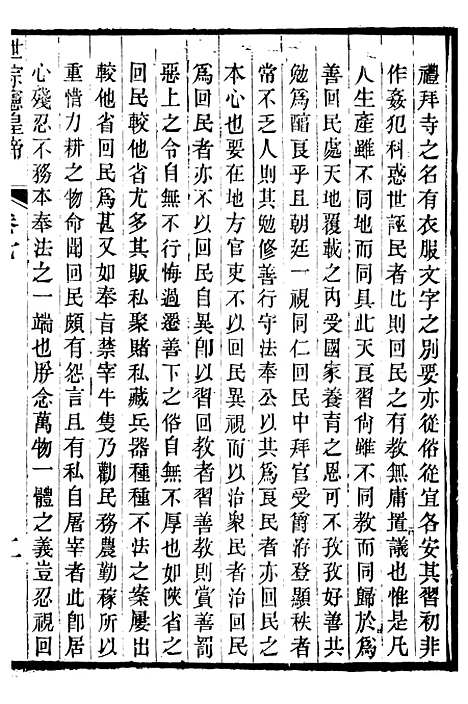 禮拜寺之名有衣服文字之別要亦從俗從宜各安其習初非
作姦犯科惑世誣民者比則回民之有教無庸置議也惟是凡
人生產雖不同地而同具此天良習尚雖不同教而同歸於為
善回民處天地覆載之內受國家養育之恩可不孜孜好善共
勉為醕良乎且朝廷一視同仁回民中拜官受爵洊登顯秩者
常不乏人則其勉修善行守法奉公以共為良民者亦回民之
本心也要在地方官吏不以回民異視而以治衆民者治回民
為回民者亦不以回民自異卽以習回教者習善教則賞善罰
惡上之令自無不行悔過遷善下之俗自無不厚也如陝省之
回民較他省尤多其販私聚賭私藏兵器種種不法之案屢出
較他省回民為甚又如奉旨禁宰牛隻乃勸民務農勤稼所以
重惜力耕之物命聞回民頗有怨言且有私自屠宰者此卽居
心殘忍不務本奉法之一端也朕念萬物一體之義豈忍視回
世宗憲皇帝
卷七
二